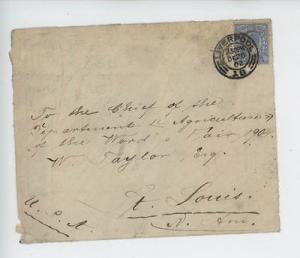 LIVERPOOL
16
To the Chief of the
Department of Agriculture
of the World's Fair 190
W. Taylor, Esq.
St. Louis.
U. S. A.
N. Am.